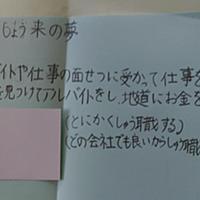 しょう来の夢
バイトや仕事の面せつに受かって仕事を
を見つけてアルバイトをし、地道にお金を
(とにかくしゅう職する)
(どの会社でも良いからしゅう職